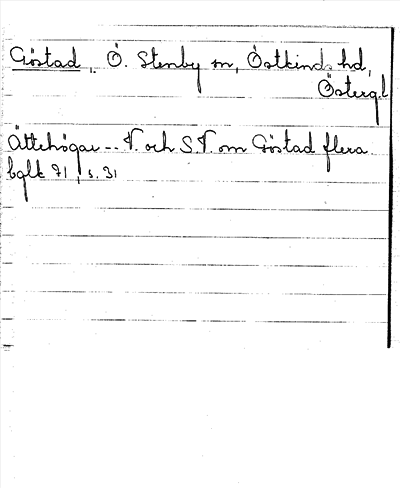 Göstad, Ö. Stenby sn, Östkinds hd,
Östergl
Ättehögar -- V. och S.V. om Göstad flera
bglk 71, s. 31